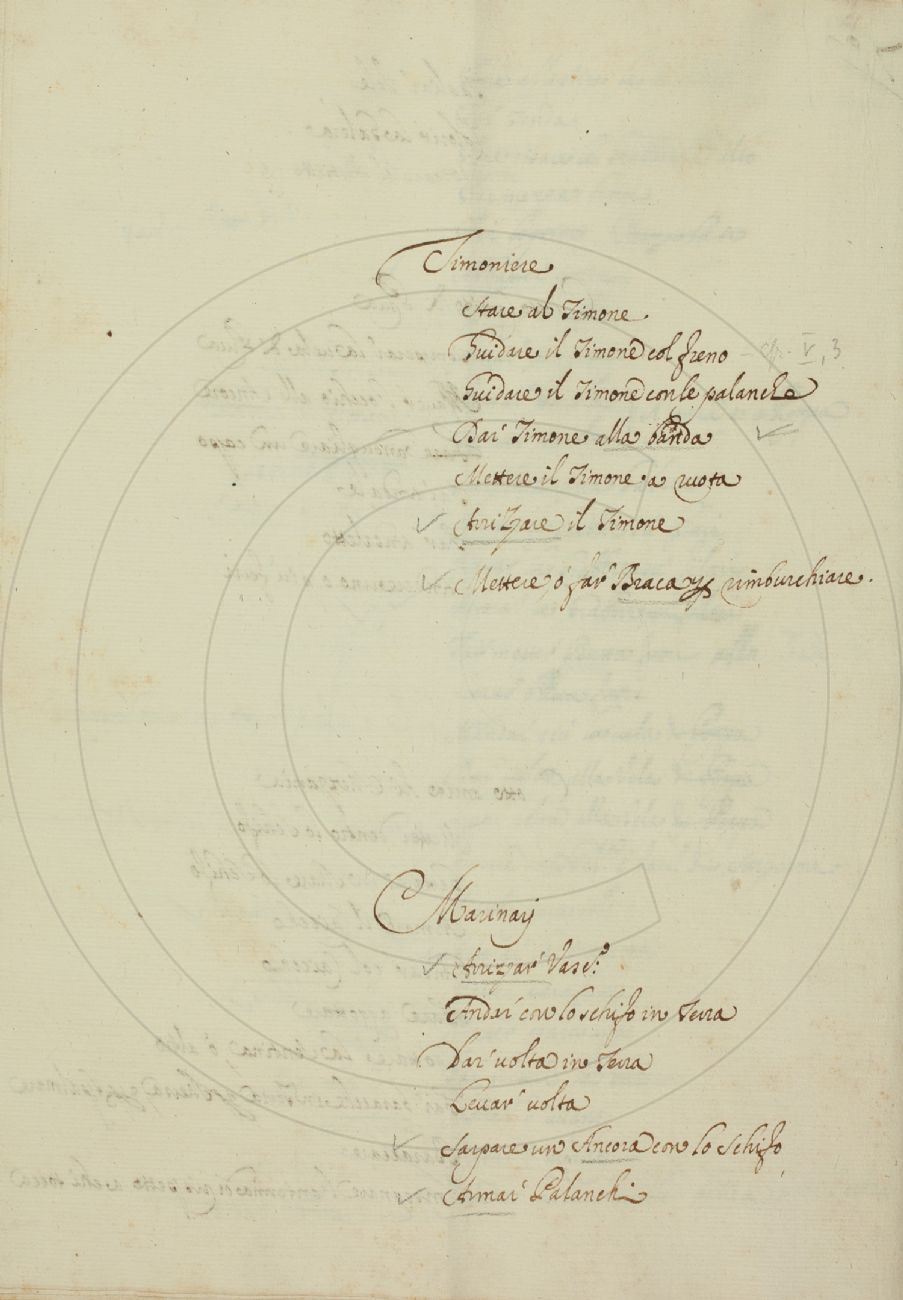 Timoniere
Stare al Timone
Guidare il Timone col freno - cfr. V, 3
Guidare il Timone con le palanche
Dar' Timone alla banda
Mettere il Timone a ruota
Arrizare il Timone
Mettere, ò far' Braca p rimburchiare.
Marinarij
Arrizzar' Vasc.º
Andar' con lo schifo in Terra
Dar' volta in Terra
Levar' volta
Sarpare un Ancora con lo schifo
Armar' Palanchi